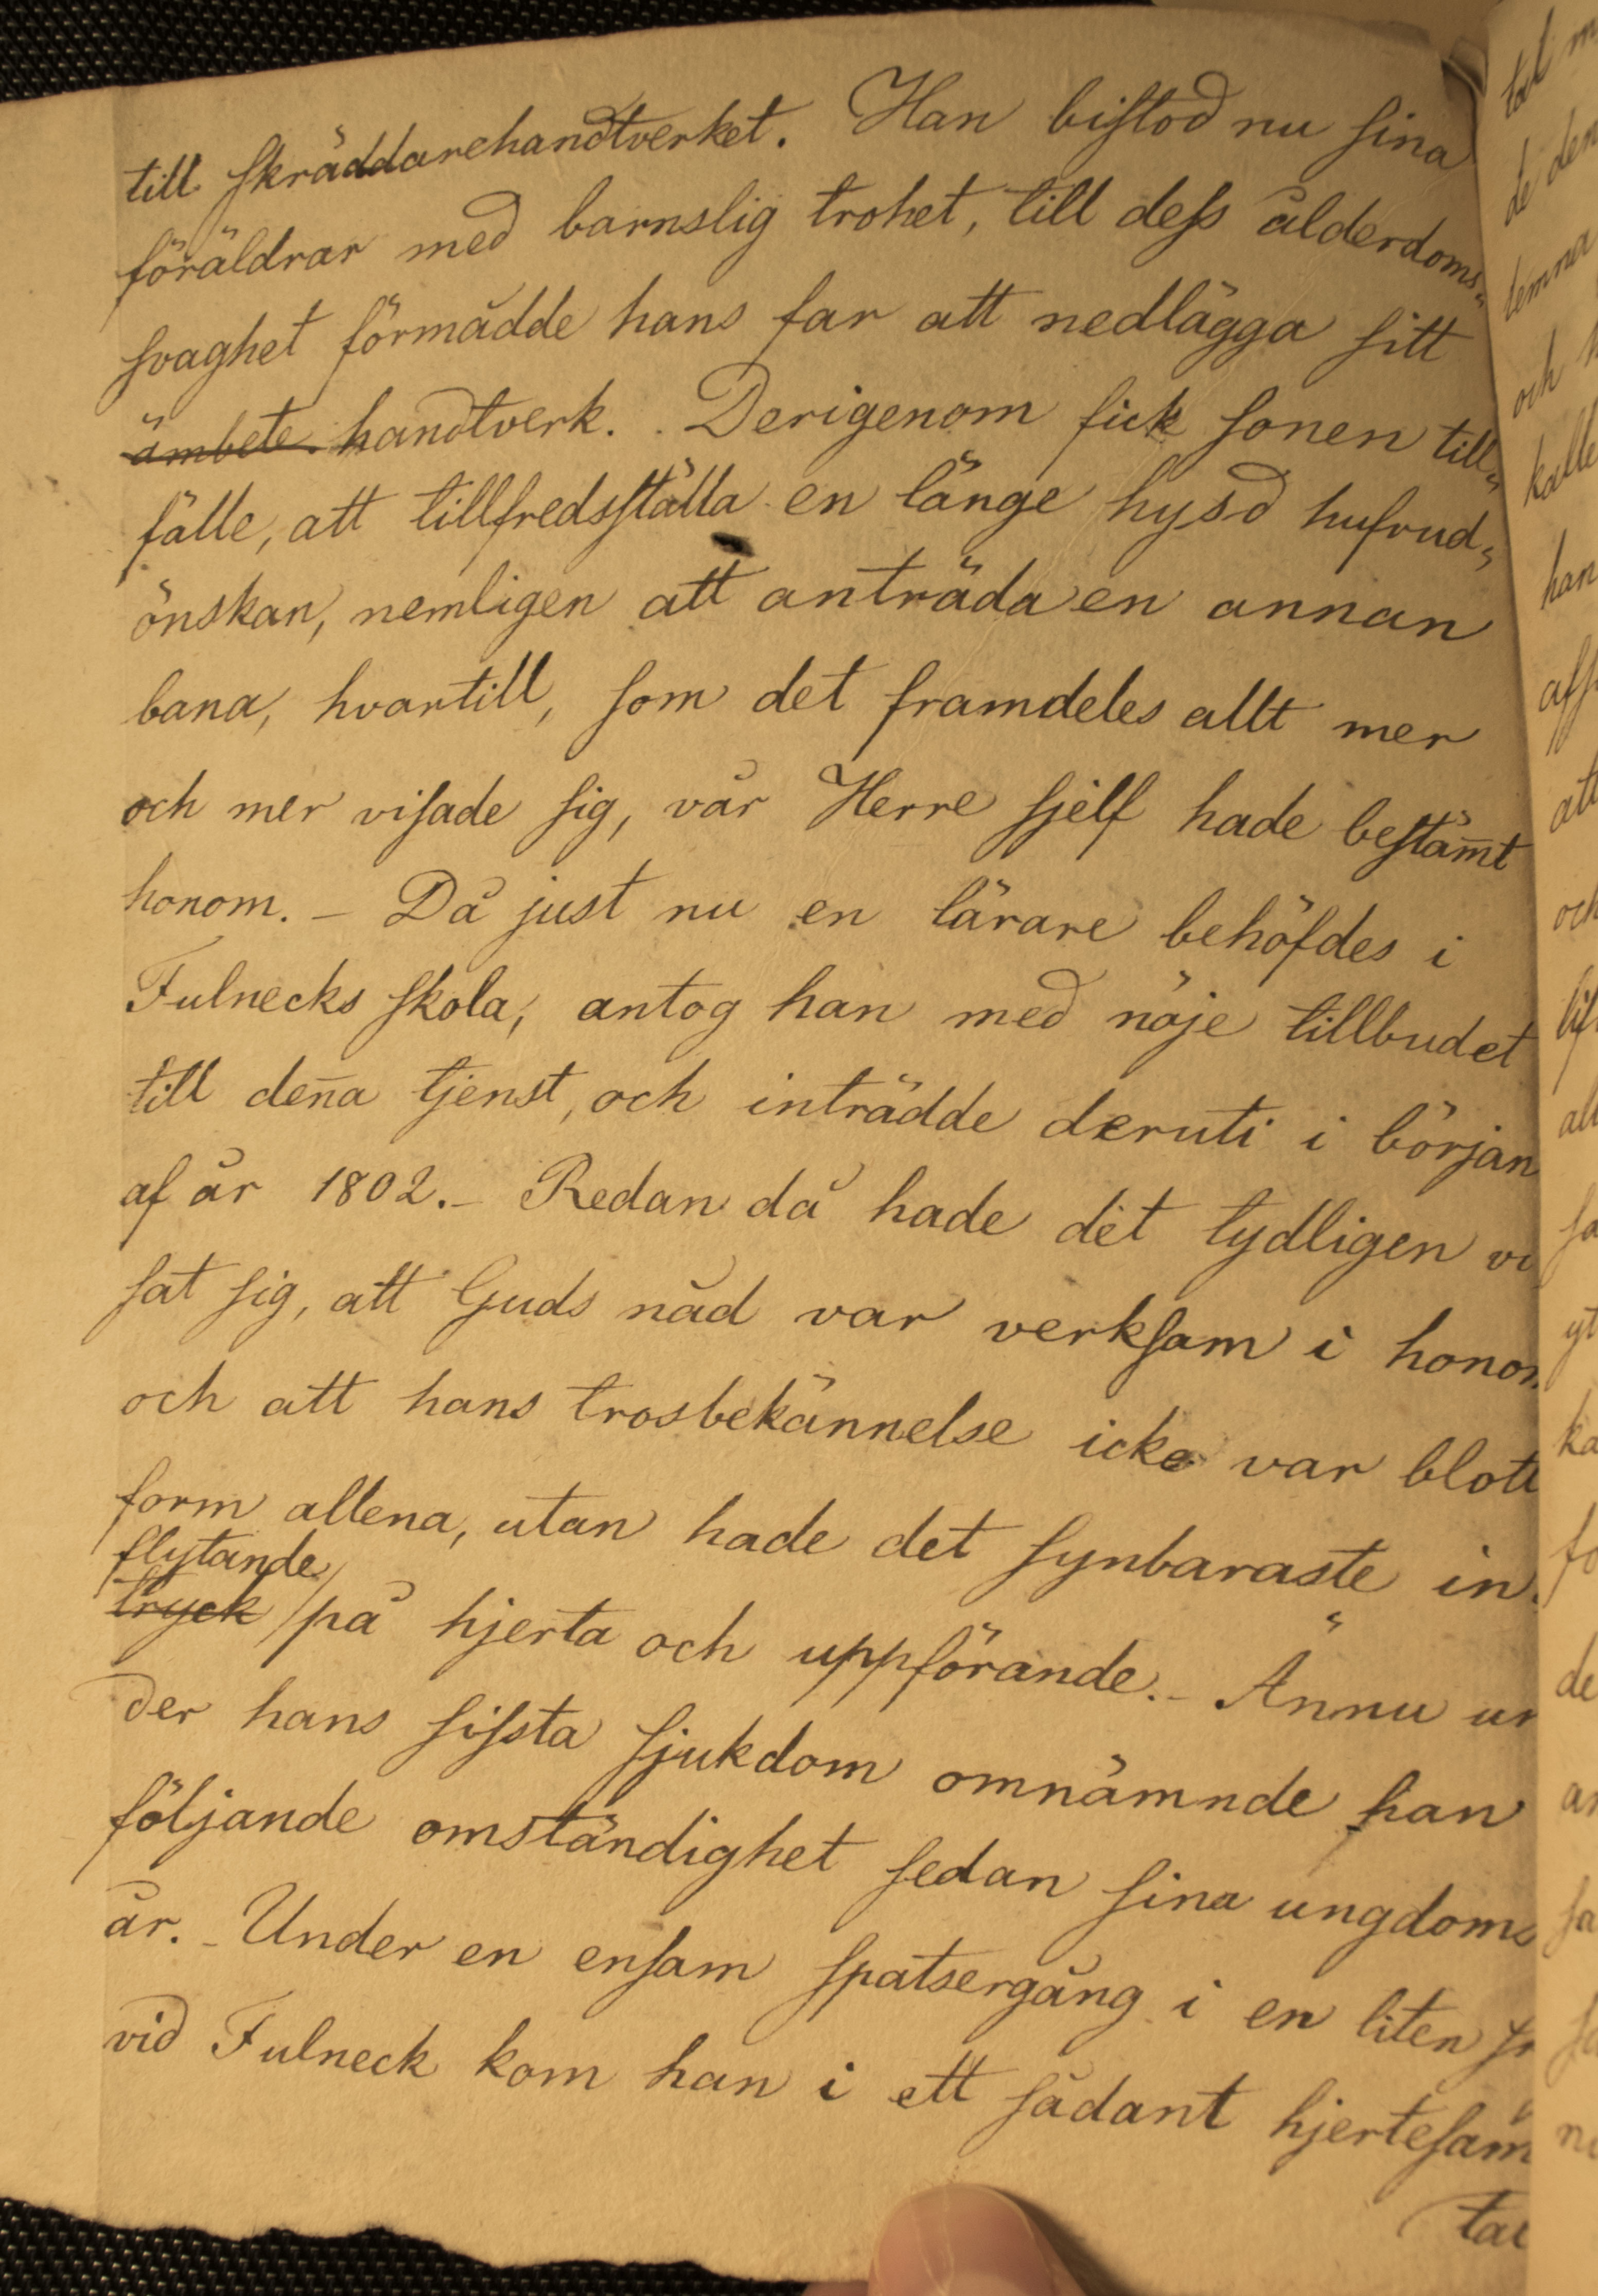 till skräddarehandtverket. Han bistod nu sina
föräldrar med barnslig trohet, till dess ålderdoms„
svaghet förmådde hans far att nedlägga sitt
ämbete handtverk. Derigenom fick sonen till„
fälle, att tillfredsställa en länge hysd hufvud„
önskan, nemligen att anträda en annan
bana, hvartill, som det framdeles allt mer
och mer visade sig, vår Herre sjelf hade bestäm̅t
honom. – Då just nu en lärare behöfdes i
Fulnecks skola, antog han med nöje tillbudet
till den̅a tjenst, och inträdde deruti i början
af år 1802. – Redan då hade det tydligen vi
sat sig, att Guds nåd var verksam i honom
och att hans trosbekännelse icke var blott
form allena, utan hade det synbaraste in
flytande
tryck på hjerta och uppförande. – Ännu un
der hans sista sjukdom omnämnde han
följande omständighet sedan sina ungdoms
år. – Under en ensam spatsergång i en liten
vid Fulneck kom han i ett sådant hjertesam
tal